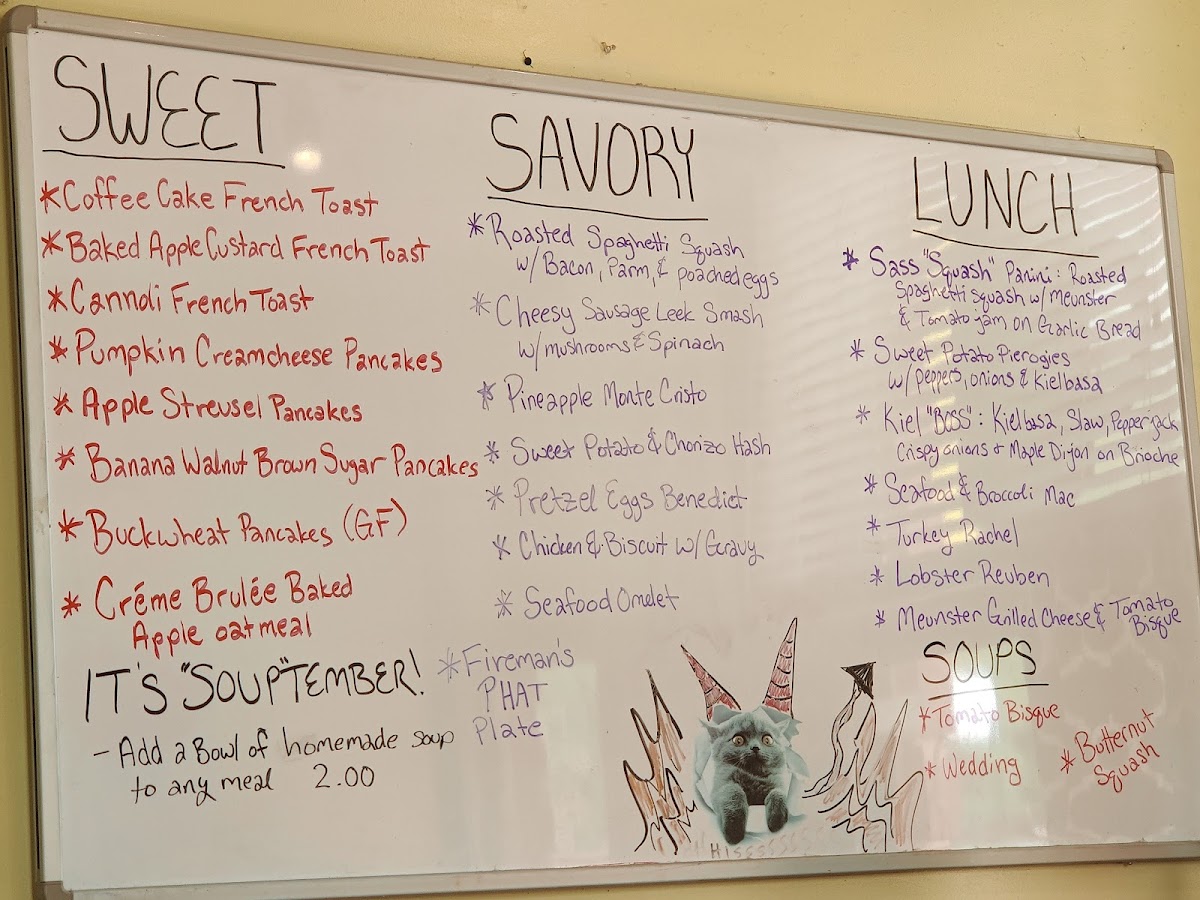 SWEET
*Coffee Cake French Toast
*Baked Apple Custard French Toast
*Cannoli French Toast
*Pumpkin Creamcheese Pancakes
*Apple Streusel Pancakes
*Banana Walnut Brown Sugar Pancakes
*Buckwheat Pancakes (GF)
*Créme Brulée Baked
Apple oatmeal
IT'S "SOUP"TEMBER!
- Add a Bowl of homemade soup
to any meal 2.00
SAVORY
*Roasted Spaghetti Squash
w/ Bacon, Parm, & poached eggs
*Cheesy Sausage Leek Smash
w/ mushrooms & Spinach
*Pineapple Monte Cristo
*Sweet Potato & Chorizo Hash
*Pretzel Eggs Benedict
*Chicken & Biscuit w/ Gravy
*Seafood Omelet
*Fireman's
PHAT
Plate
HISSSSSSS
LUNCH
*Sass "Squash" Panini: Roasted
Spaghetti squash w/ Meunster
& Tomato jam on Garlic Bread
*Sweet Potato Pierogies
w/ peppers, onions & Kielbasa
*Kiel "Boss": Kielbasa, Slaw, Pepperjack
Crispy onions + Maple Dijon on Brioche
*Seafood & Broccoli Mac
*Turkey Rachel
*Lobster Reuben
*Meunster Grilled Cheese & Tomato
Bisque
SOUPS
*Tomato Bisque
*Wedding
*Butternut
Squash